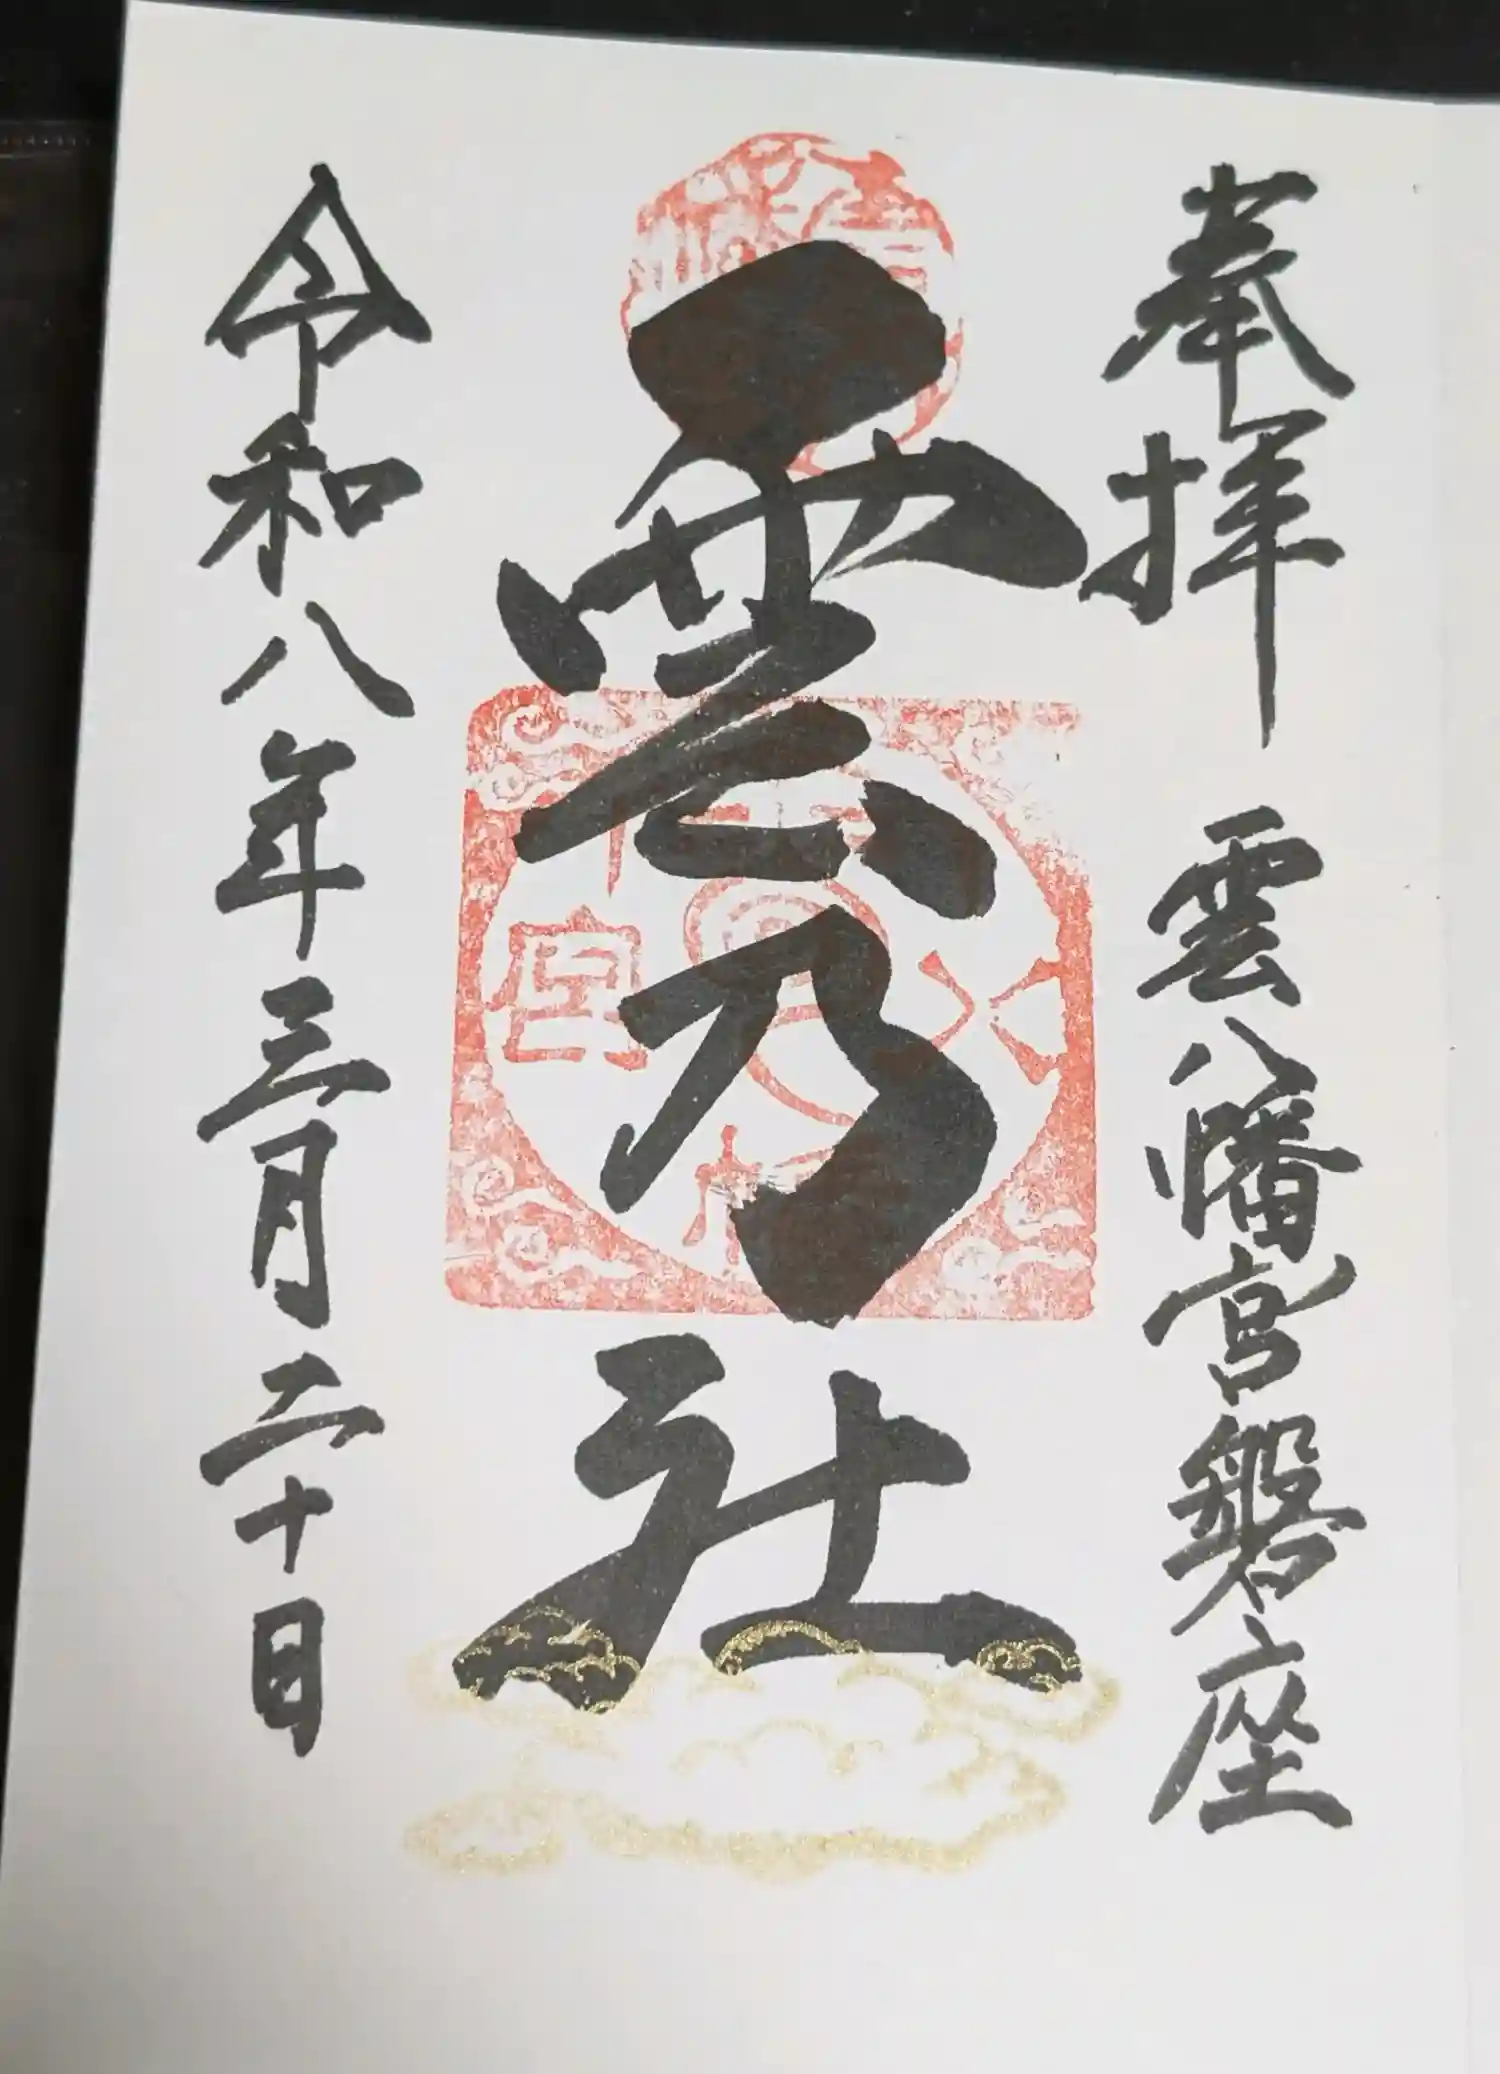 奉拝
雲八幡宮磐座
雲乃社
令和八年三月二十日
八
幡
宮